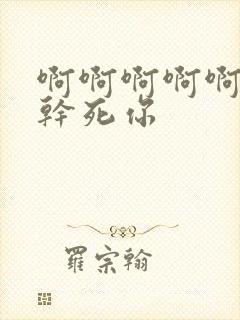 啊啊啊啊啊
幹死你
羅宗翰